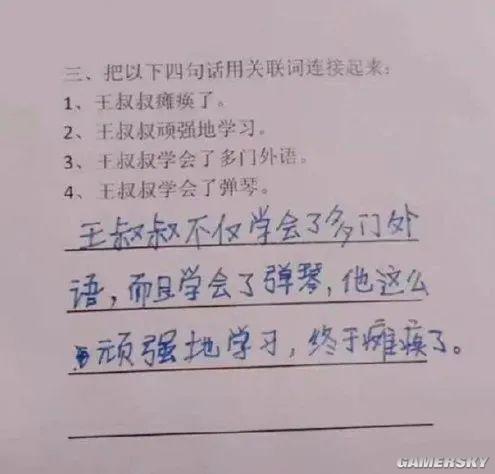 三、把以下四句话用关联词连接起来：
1、王叔叔瘫痪了。
2、王叔叔顽强地学习。
3、王叔叔学会了多门外语。
4、王叔叔学会了弹琴。
王叔叔不仅学会了多门外
语，而且学会了弹琴，他这么
顽强地学习，终于瘫痪了。
GAMERSKY